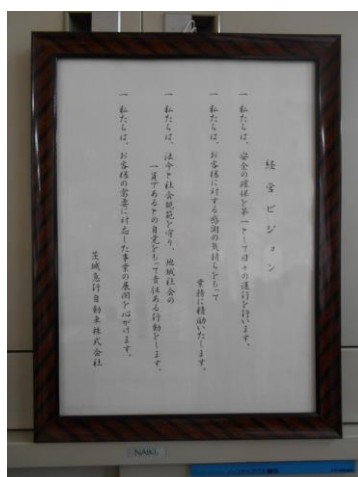 経営ビジョン
一 私たちは、安全の確保を第一として日々の運行を行います。
一 私たちは、お客様に対する感謝の気持ちをもって
業務に精励いたします。
一 私たちは、法令と社会規範を守り、地域社会の
一員であるとの自覚をもって責任ある行動をします。
一 私たちは、お客様の需要に対応した事業の展開を心がけます。
茨城急行自動車株式会社
NAIKI